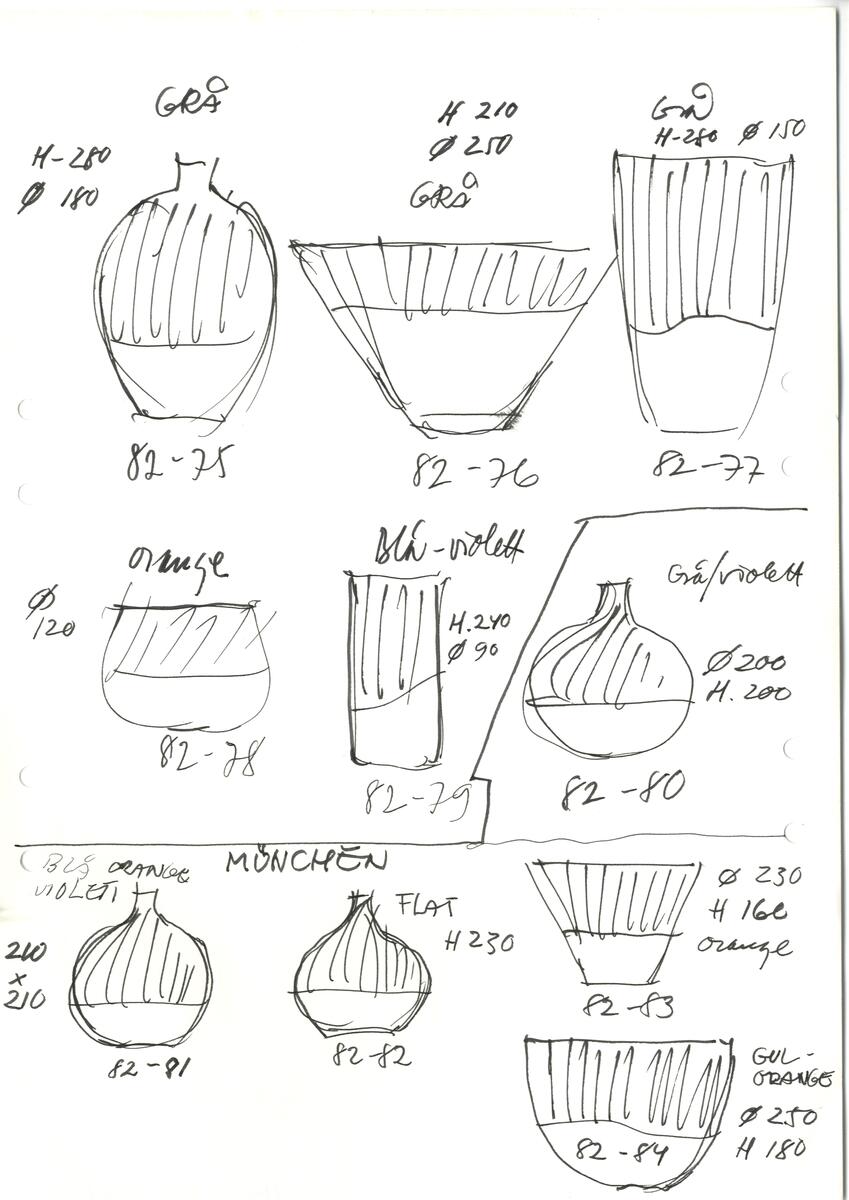 GRÅ
H-280
Ø 180
82-75
H 210
Ø 250
GRÅ
82-76
Grå
H-280 Ø 150
82-77
orange
Ø
120
82-78
Blå-violett
H.240
Ø 90
82-79
Grå/violett
Ø 200
H. 200
82-80
MÜNCHEN
BLÅ ORANGE
VIOLETT
210
x
210
82-81
FLAT
H 230
82-82
Ø 230
H 160
orange
82-83
GUL-
ORANGE
Ø 250
H 180
82-84